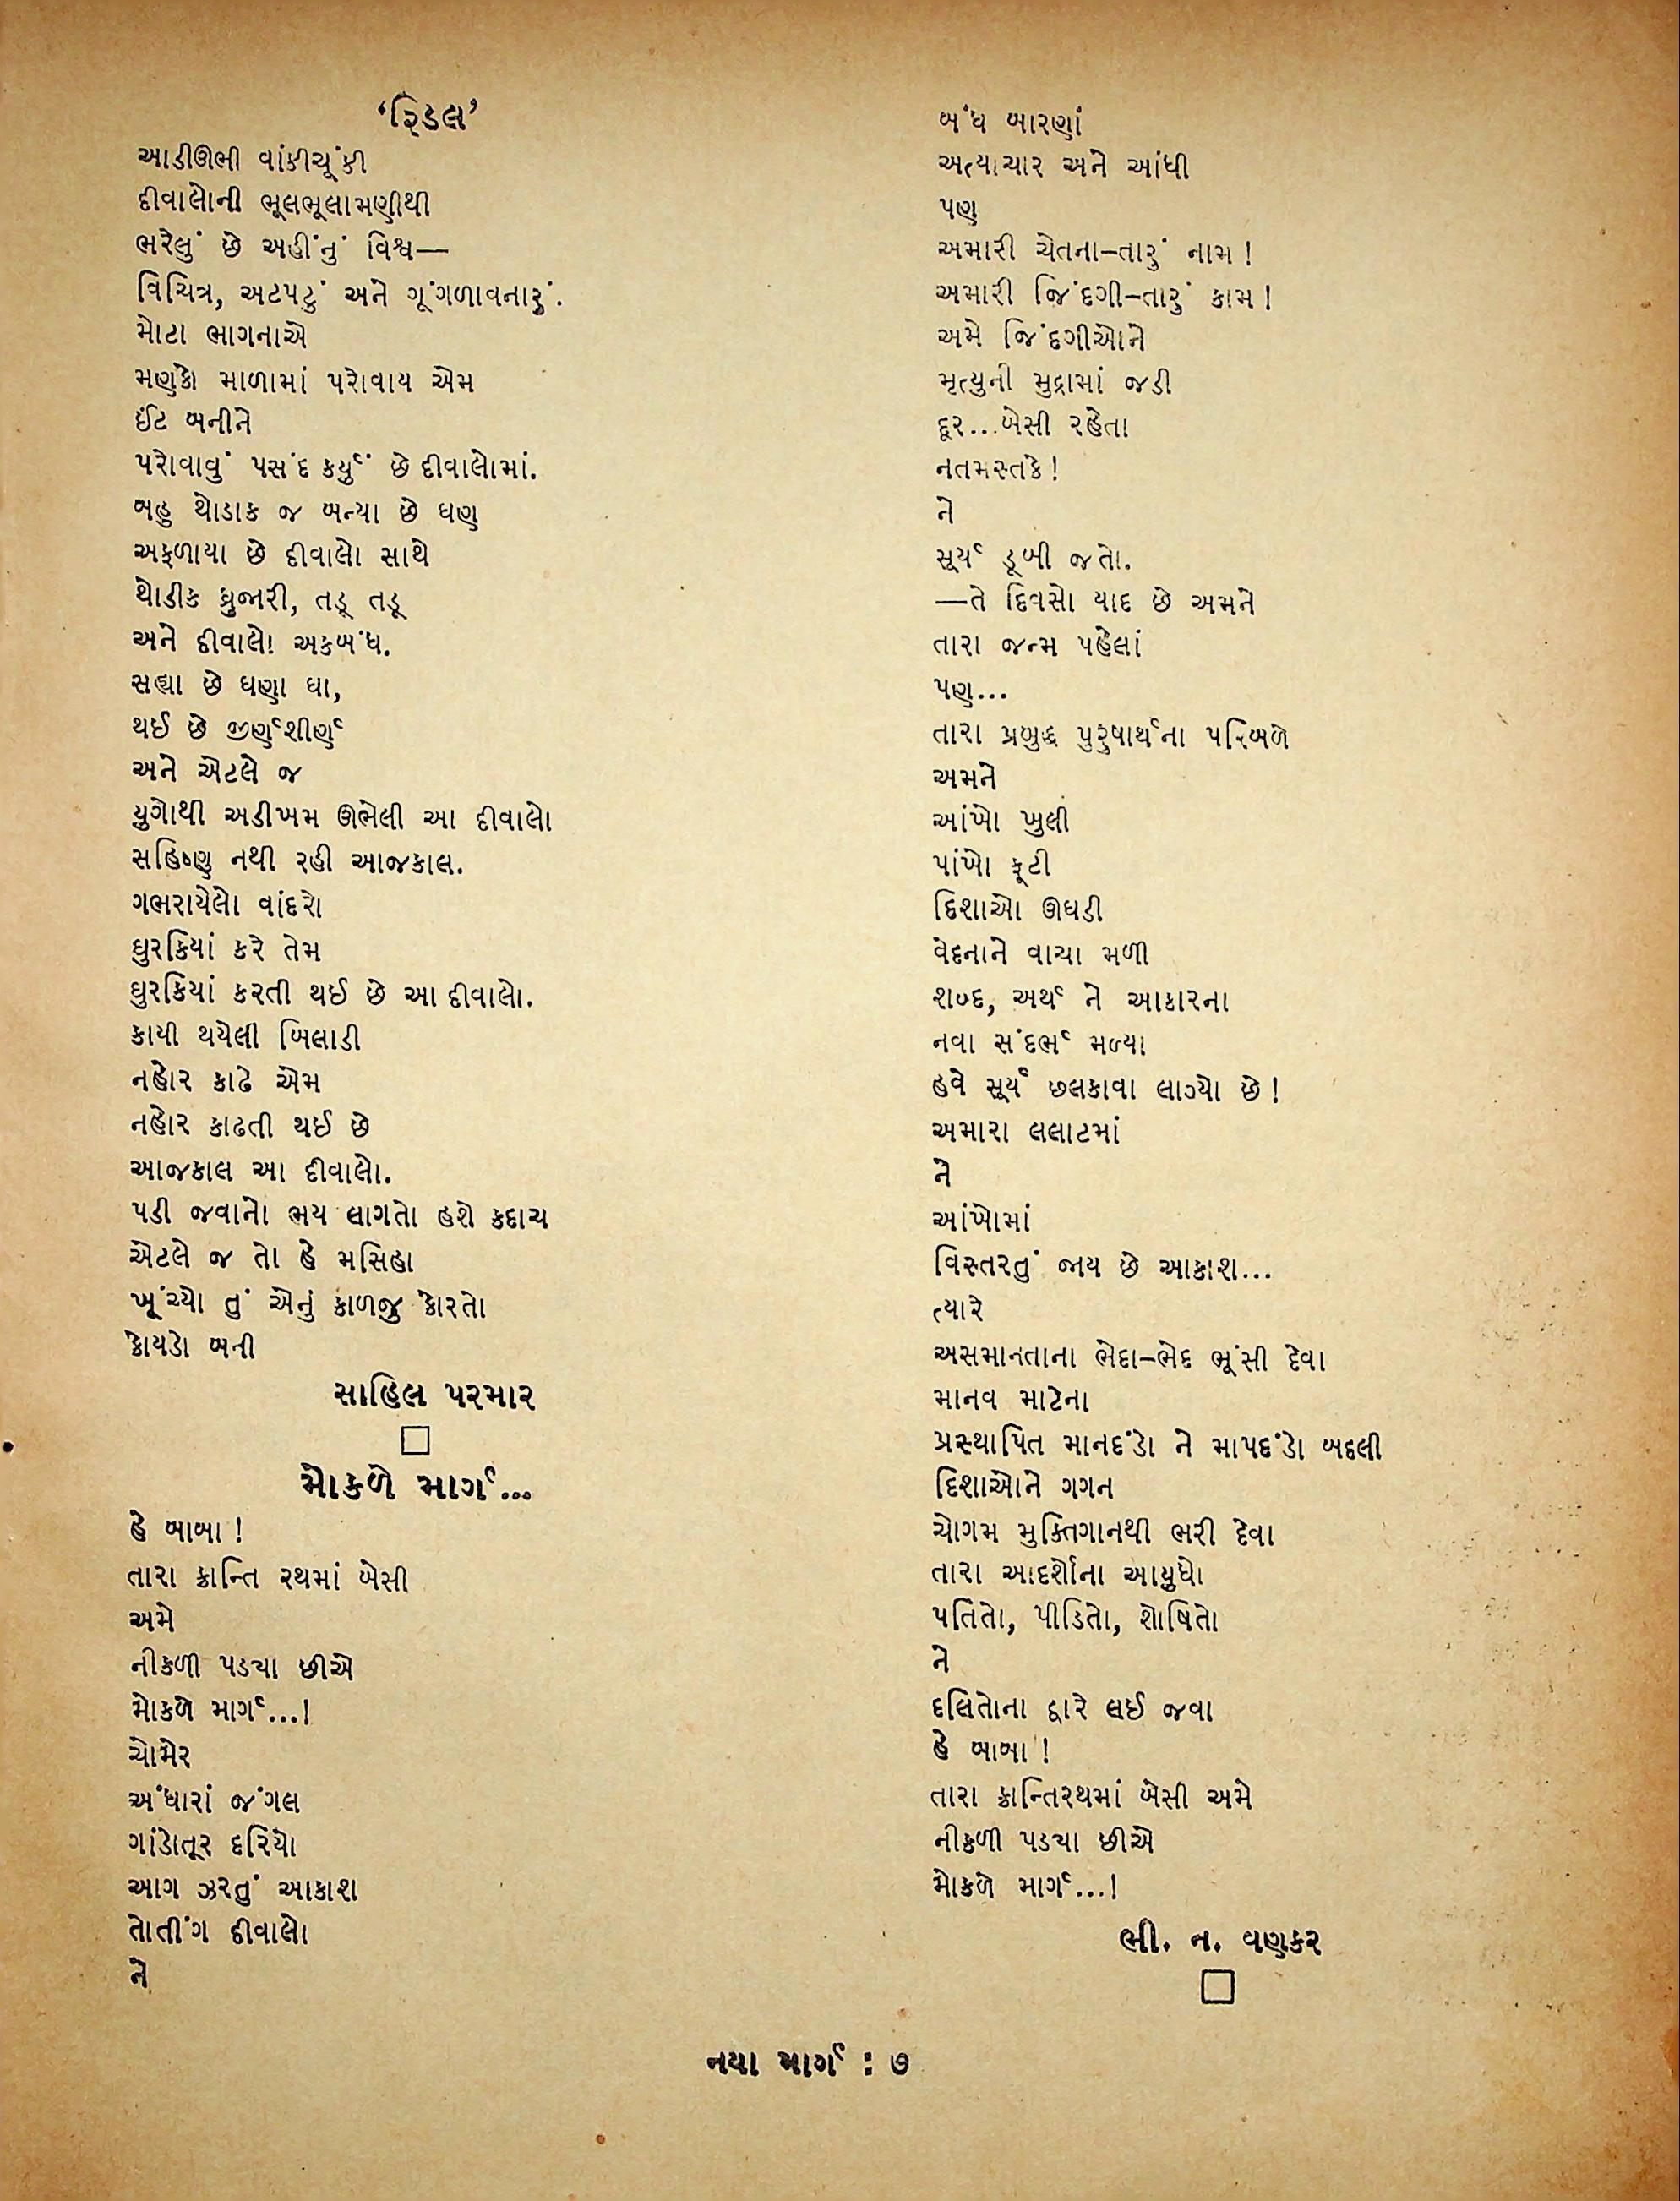 ‘ફિડલ’
આડીઊભી વાંકીચૂંકી
દીવાલોની ભૂલભૂલામણીથી
ભરેલું છે અહીંનું વિશ્વ—
વિચિત્ર, અટપટું અને ગૂંગળાવનારું.
મોટા ભાગનાએ
મણકો માળામાં પરોવાય એમ
ઈંટ બનીને
પરોવાવું પસંદ કર્યું છે દીવાલોમાં.
બહુ થોડાક જ બન્યા છે ઘણ
અફળાયા છે દીવાલો સાથે
થોડીક ધ્રુજારી, તડૂ તડૂ
અને દીવાલો અકબંધ.
સહ્યા છે ઘણા ઘા,
થઈ છે જીર્ણશીર્ણ
અને એટલે જ
યુગોથી અડીખમ ઊભેલી આ દીવાલો
સહિષ્ણુ નથી રહી આજકાલ.
ગભરાયેલો વાંદરો
ઘુરકિયાં કરે તેમ
ઘુરકિયાં કરતી થઈ છે આ દીવાલો.
કાયી થયેલી બિલાડી
નહોર કાઢે એમ
નહોર કાઢતી થઈ છે
આજકાલ આ દીવાલો.
પડી જવાનો ભય લાગતો હશે કદાચ
એટલે જ તો હે મસિહા
ખૂંચ્યો તું એનું કાળજુ કોરતો
કોયડો બની
સાહિલ પરમાર
મોકળે માર્ગ...
હે બાબા !
તારા ક્રાન્તિ રથમાં બેસી
અમે
નીકળી પડ્યા છીએ
મોકળે માર્ગ...!
ચોમેર
અંધારાં જંગલ
ગાંડોતૂર દરિયો
આગ ઝરતું આકાશ
તોતીંગ દીવાલો
ને
બંધ બારણાં
અત્યાચાર અને આંધી
પણ
અમારી ચેતના–તારું નામ !
અમારી જિંદગી–તારું કામ !
અમે જિંદગીઓને
મૃત્યુની મુદ્રામાં જડી
દૂર...બેસી રહેતા
નતમસ્તકે !
ને
સૂર્ય ડૂબી જતો.
—તે દિવસો યાદ છે અમને
તારા જન્મ પહેલાં
પણ...
તારા પ્રબુદ્ધ પુરુષાર્થના પરિબળે
અમને
આંખો ખુલી
પાંખો ફૂટી
દિશાઓ ઊઘડી
વેદનાને વાચા મળી
શબ્દ, અર્થ ને આકારના
નવા સંદર્ભ મળ્યા
હવે સૂર્ય છલકાવા લાગ્યો છે !
અમારા લલાટમાં
ને
આંખોમાં
વિસ્તરતું જાય છે આકાશ...
ત્યારે
અસમાનતાના ભેદા–ભેદ ભૂંસી દેવા
માનવ માટેના
પ્રસ્થાપિત માનદંડો ને માપદંડો બદલી
દિશાઓને ગગન
ચોગમ મુક્તિગાનથી ભરી દેવા
તારા આદર્શોના આયુધો
પતિતો, પીડિતો, શોષિતો
ને
દલિતોના દ્વારે લઈ જવા
હે બાબા !
તારા ક્રાન્તિરથમાં બેસી અમે
નીકળી પડ્યા છીએ
મોકળે માર્ગ...!
ભી. ન. વણકર
નયા માર્ગ : ૭